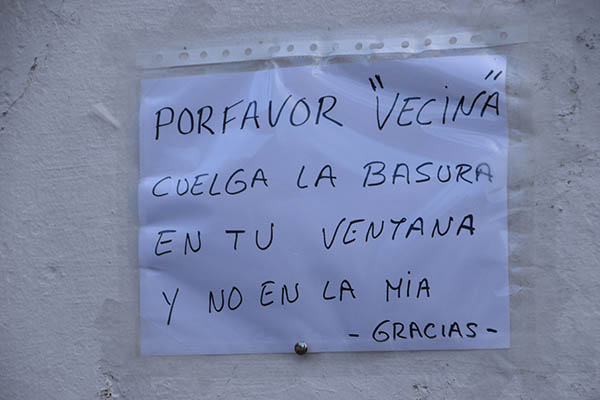 PORFAVOR "VECINA"
CUELGA LA BASURA
EN TU VENTANA
Y NO EN LA MIA
- GRACIAS -